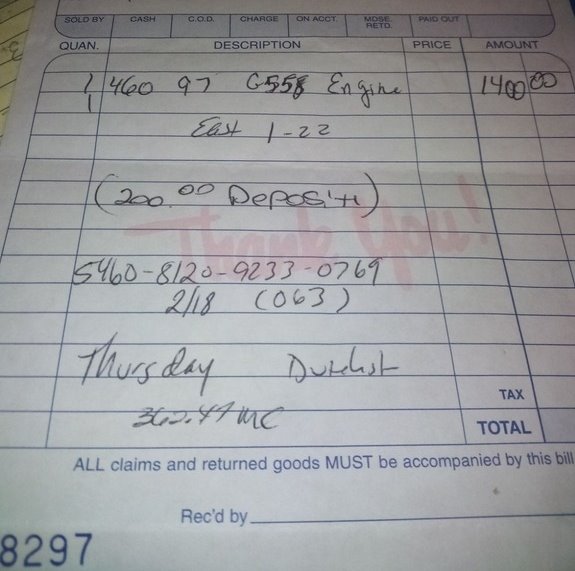 SOLD BY CASH C.O.D. CHARGE ON ACCT. MDSE. RETD. PAID OUT
QUAN. DESCRIPTION PRICE AMOUNT
1 460 97 G558 Engine 1400.00
1
East 1-22
(200.00 Deposit)
Thank You!
Thursday
MC
TAX
TOTAL
ALL claims and returned goods MUST be accompanied by this bill
Rec'd by
8297